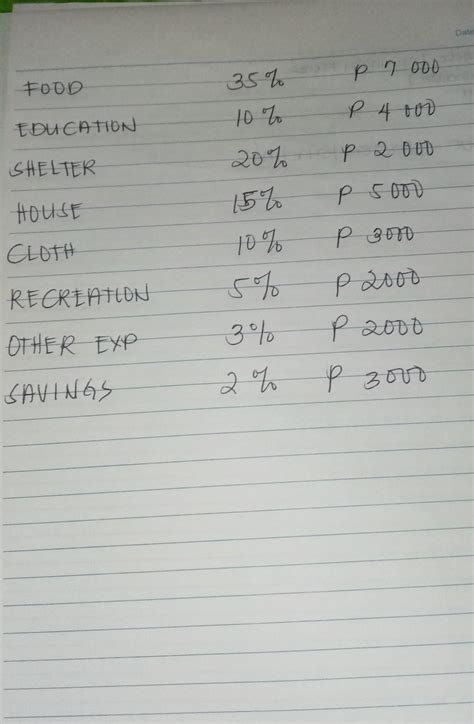 Date
FOOD 35% P 7 000
EDUCATION 10% P 4 000
SHELTER 20% P 2 000
HOUSE 15% P 5000
CLOTH 10% P 3000
RECREATION 5% P 2000
OTHER EXP 3% P 2000
SAVINGS 2% P 3000